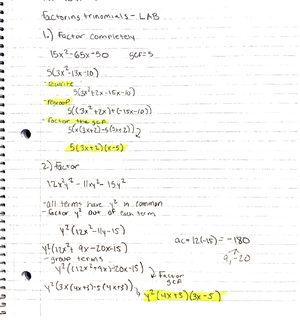 Factoring trinomials - LAB
1.) Factor completely
15x²-65x-50 gcf=5
5(3x²-13x-10)
-rewrite
5(3x²+2x-15x-10)
-regroup
5((3x²+2x)+(-15x-10))
-factor the gcf
5(x(3x+2)-5(3x+2))
5(3x+2)(x-5)
2.) Factor
12x²y² - 11xy² - 15y²
-all terms have y² in common
-factor y² out of each term
y²(12x²-11x-15) ac=12(-15)=-180
y²(12x²+ 9x-20x-15) 9,-20
-group terms
y²((12x²+9x)-20x-15) Factor gcf
y²(3x(4x+3)-5(4x+3)) y²(4x+3)(3x-5)